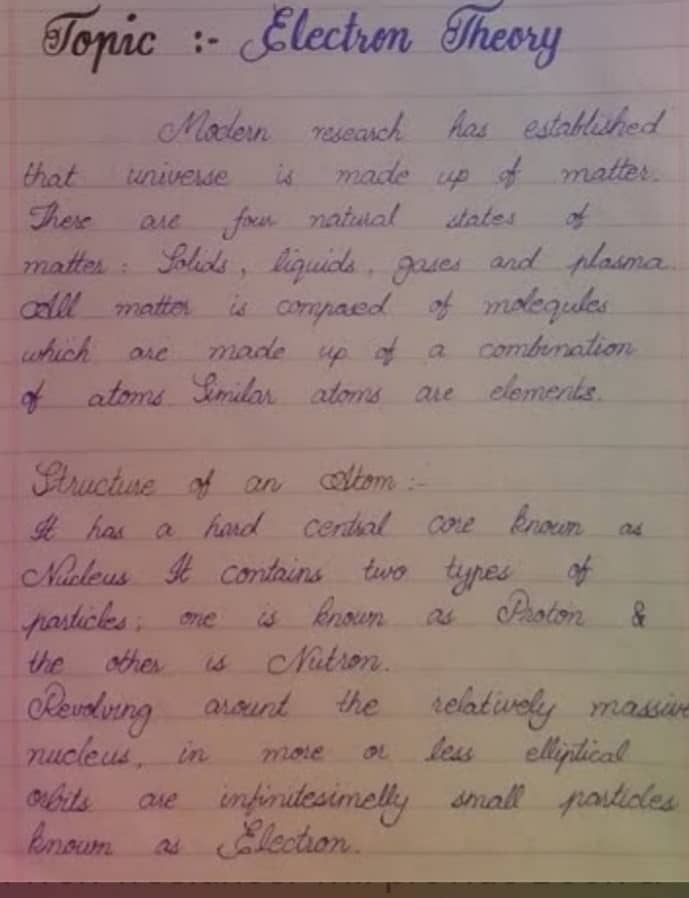 Topic :- Electron Theory
Modern research has established
that universe is made up of matter.
There are four natural states of
matter : Solids, liquids, gases and plasma.
All matter is composed of molequles
which are made up of a combination
of atoms. Similar atoms are elements.
Structure of an Atom :-
It has a hard central core known as
Nucleus It contains two types of
particles; one is known as Proton &
the other is Nutron.
Revolving arount the relatively massive
nucleus, in more or less elliptical
orbits are infinitesimelly small particles
known as Electron.